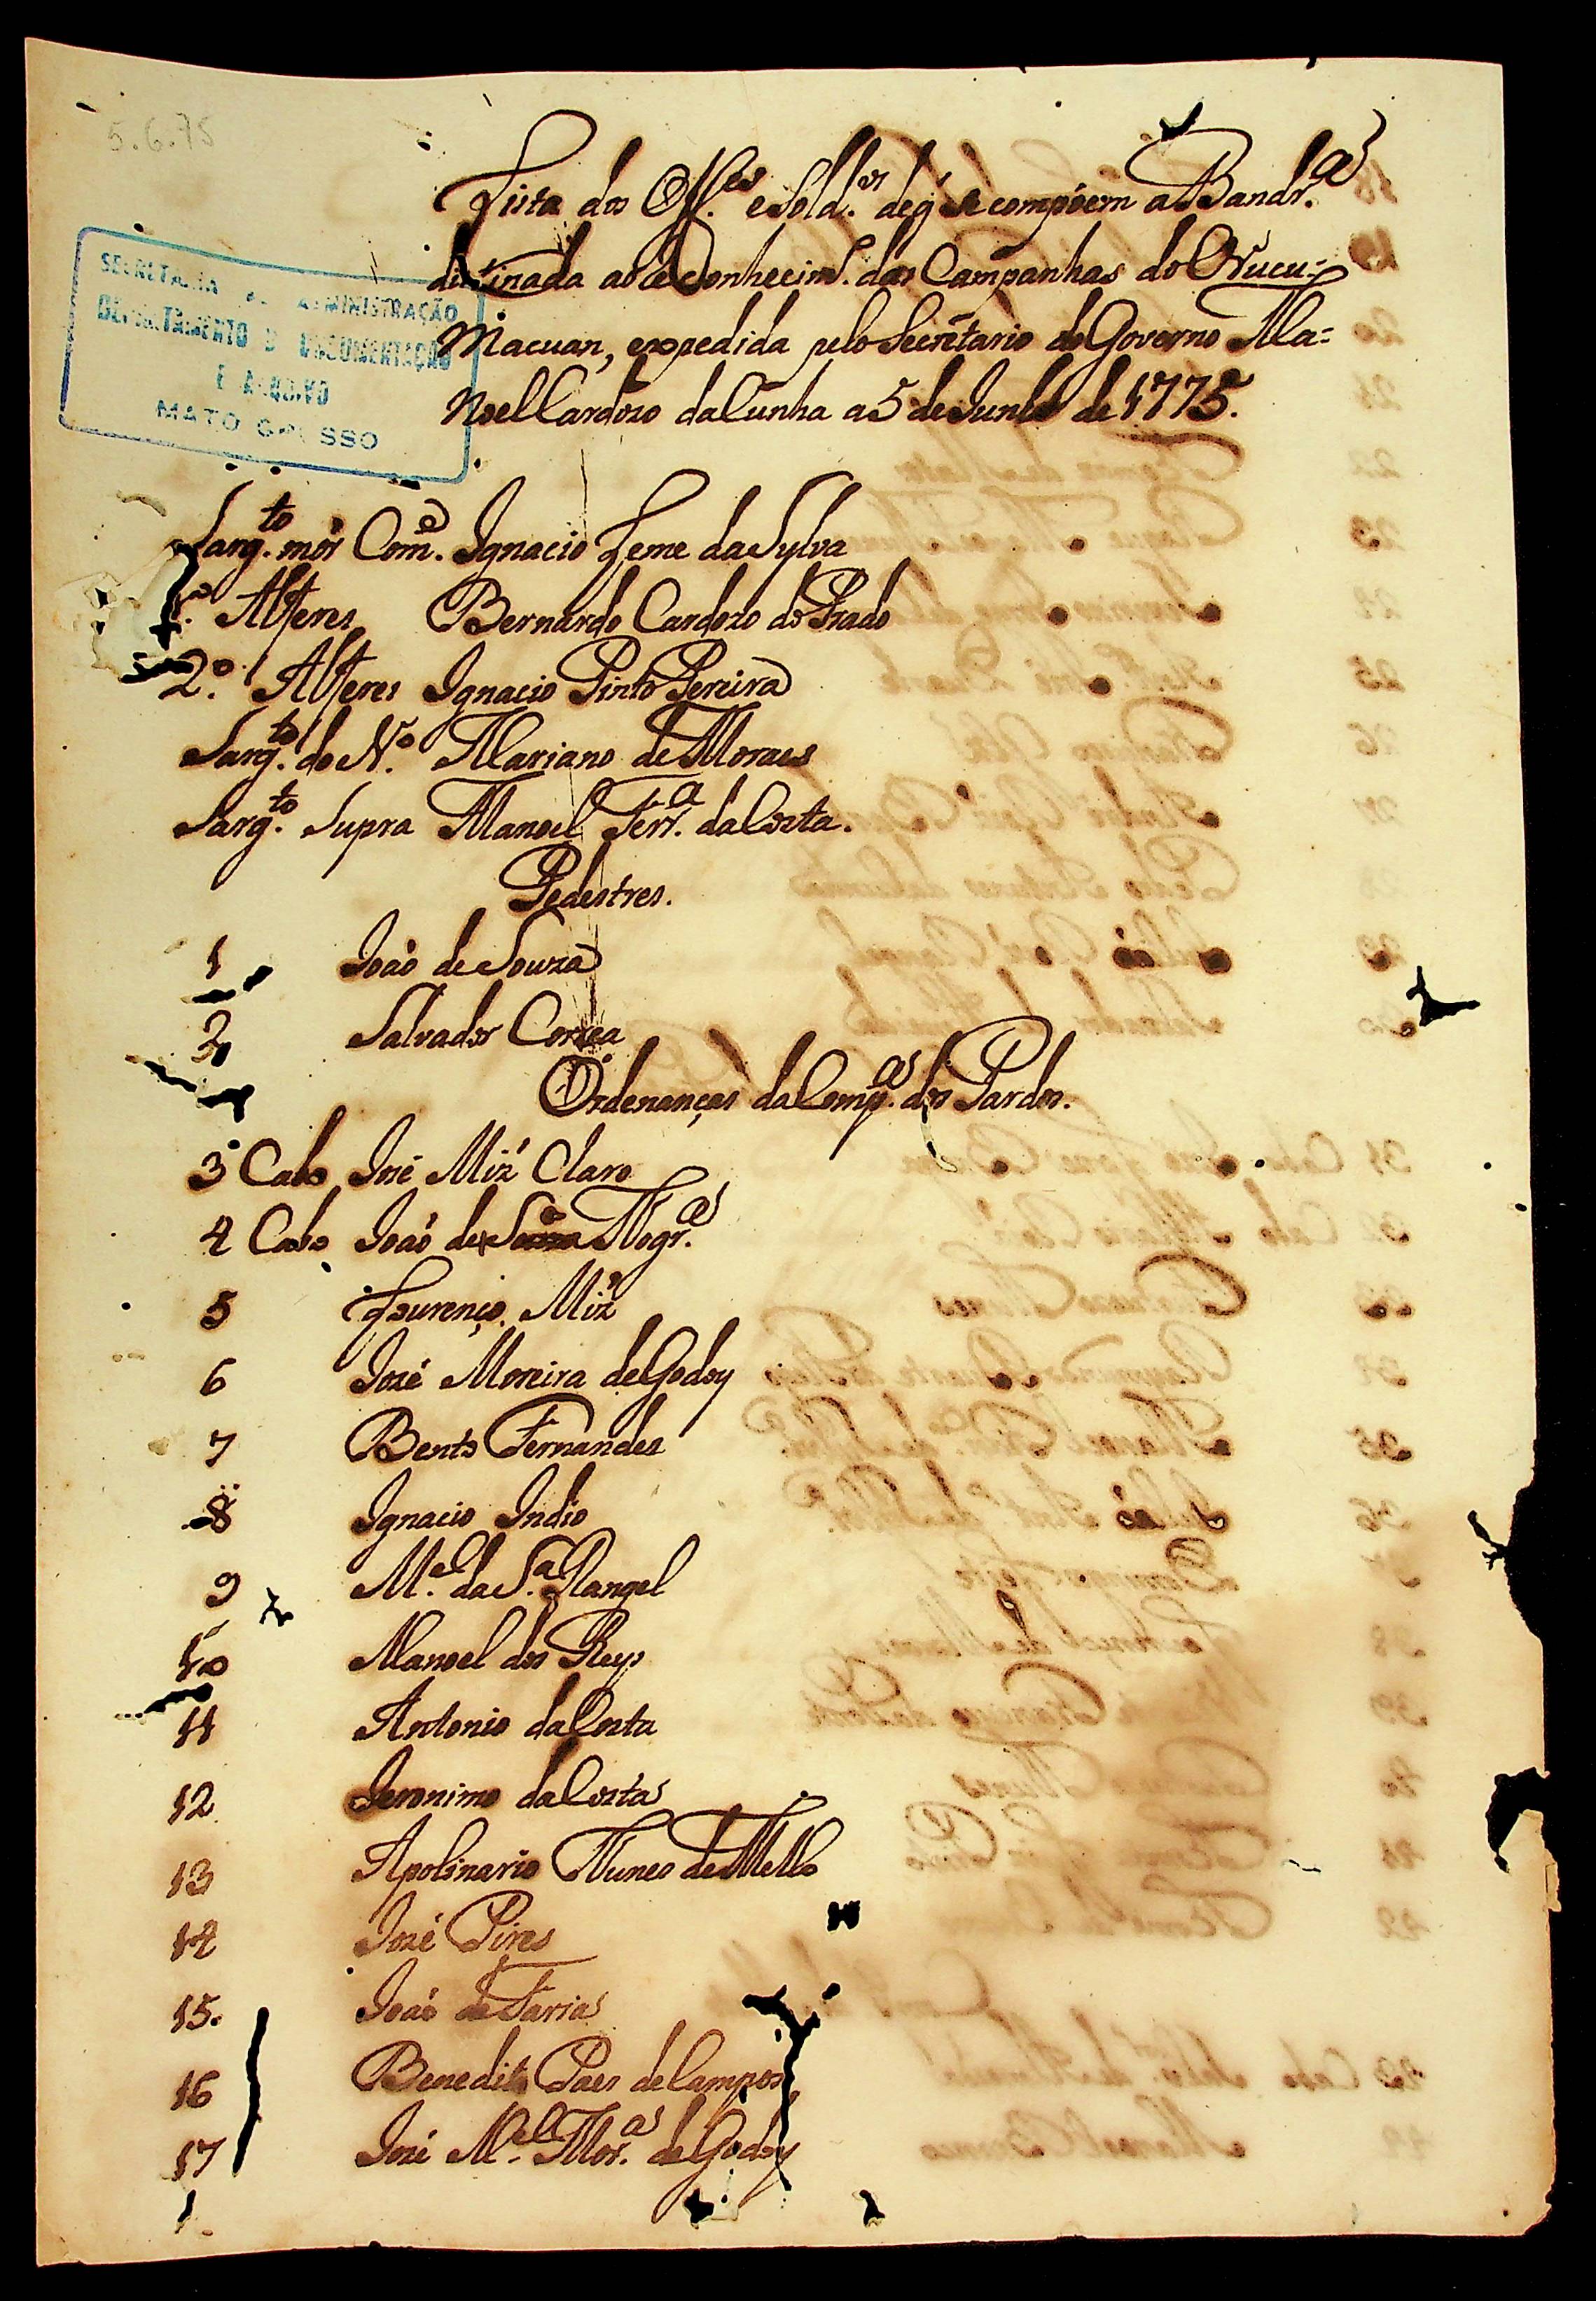 5.6.75
SECRETARIA DE ADMINISTRAÇÃO
DEPARTAMENTO D DOCUMENTAÇÃO
E ARQUIVO
MATO GROSSO
Lista dos Off.es e Sold.os de q̃ se compóem a Bandr.a
distinada ao reConhecim.to das Campanhas do Urucu=
Macuan, expedida pelo Secretario do Governo Ma=
noel Cardozo da Cunha a 5 de Junho de 1775.
Sarg.to mór Com.e Ignacio Leme da Sylva
1.o Alferes Bernardo Cardozo do Prado
2.o Alferes Ignacio Pinto Pereira
Sarg.to do N.o Mariano de Moraes
Sarg.to Supra Manoel Ferr.a da Costa.
Pedestres.
1 João de Souza
2 Salvador Correa
Ordenanças da Comp.a dos Pardos.
3 Cabo José Miz̃ Claro
4 Cabo João de Nogr.a
5 Lourenço Miz̃
6 José Moreira de Godoy
7 Bento Fernandes
8 Ignacio Indio
9 M.el da S.a Rangel
10 Manoel dos Reys
11 Antonio da Costa
12 Jeronimo da Costa
13 Apolinario Nunes de Mello
14 José Pires
15. João de Faria
16 Benedito Paes de Campos
17 José M.el Mor.a de Godoy